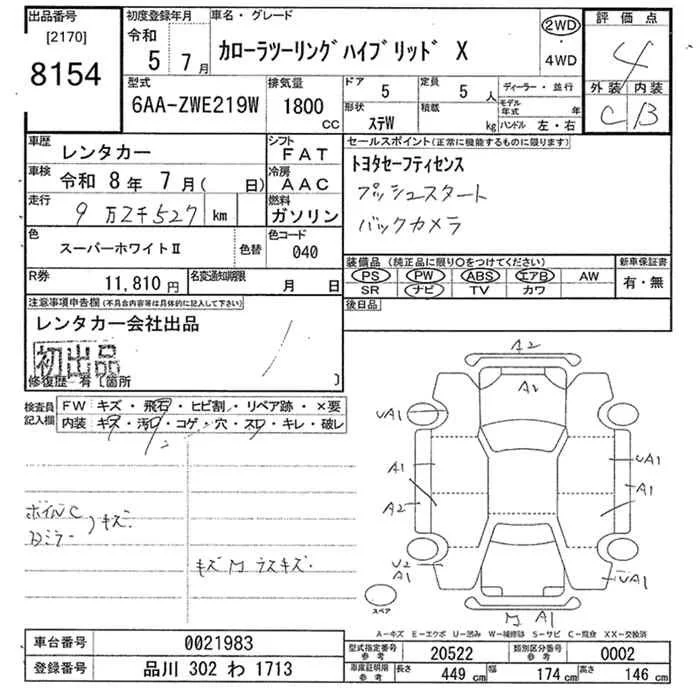 出品番号
[2170]
8154
初度登録年月
令和
5 7月
車名・グレード
カローラツーリングハイブリッド X
2WD
・
4WD
評価点
4
外装 内装
C B
型式
6AA-ZWE219W
排気量
1800
CC
ドア
5
定員
5 人
形状
ステW
積載
kg
ディーラー・並行
モデル年式 年
ハンドル 左・右
車歴
レンタカー
シフト
FAT
車検
令和 8年 7月( 日)
冷房
AAC
走行
9万2千527 km
燃料
ガソリン
色
スーパーホワイトⅡ
色替
色コード
040
R券
11,810円
名変通知期限
月 日
セールスポイント(正常に機能するものに限ります)
トヨタセーフティセンス
プッシュスタート
バックカメラ
装備品(純正品に限り○をつけてください)
PS PW ABS エアB AW
SR ナビ TV カワ
新車保証書
有・無
後日品
注意事項申告欄(不具合内容等は具体的に記入して下さい)
レンタカー会社出品
初出品
修復歴 有〔箇所 〕
検査員記入欄
FW キズ・飛石・ヒビ割・リペア跡・×要
内装 キズ・汚れ・コゲ・穴・スレ・キレ・破レ
ホイルC
Dミラー
キズ
キズ
ラスキズ
A2
A2
UA1
A1
A2
U2
A1
UA1
A1
UA1
A1
スペア
A-キズ E-エクボ U-凹み W-補修跡 S-サビ C-腐食 XX-交換済
車台番号
0021983
登録番号
品川 302 わ 1713
型式指定番号
参考
20522
類別区分番号
参考
0002
車庫証明用
参考
長さ
449 cm
幅
174 cm
高さ
146 cm